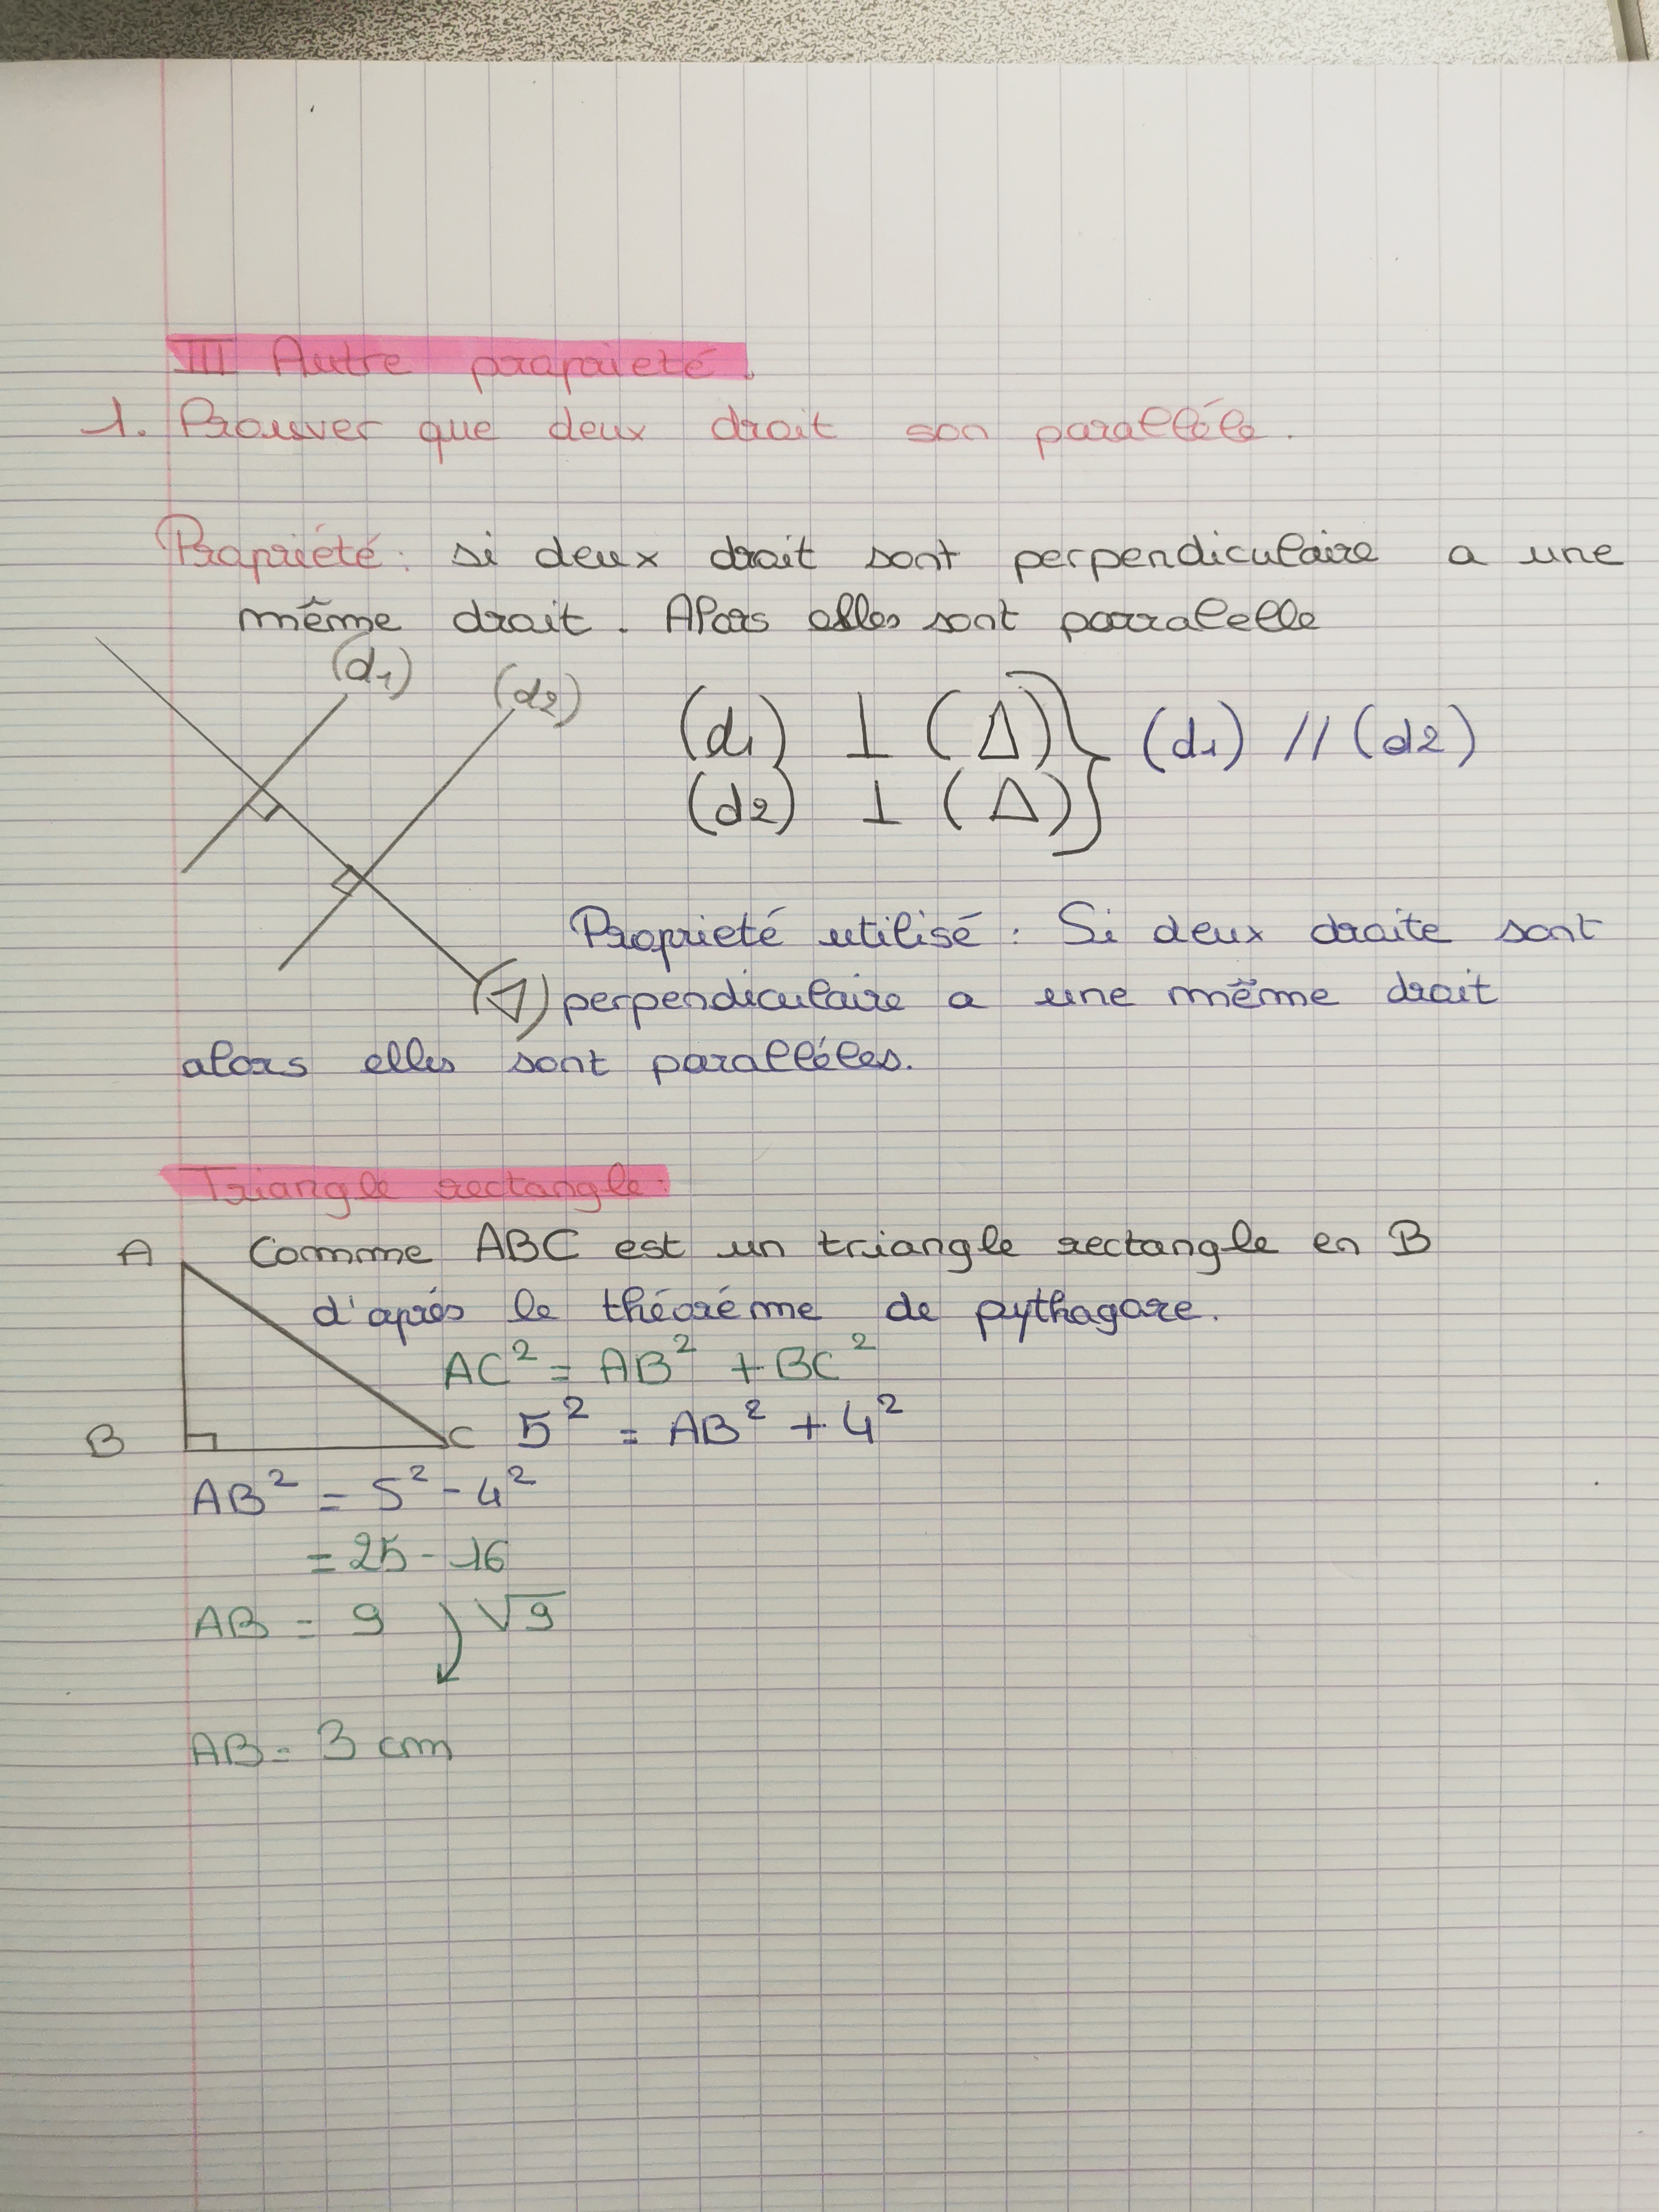 III Autre proprieté.
1. Prouver que deux droit son paralléle.
Propriété : si deux droit sont perpendiculaire a une
même droit. Alors elles sont parralelle
(d1)
(d2)
(d1) ⊥ (Δ) } (d1) // (d2)
(d2) ⊥ (Δ)
Proprieté utilisé : Si deux droite sont
(Δ) perpendiculaire a une même droit
alors elles sont paralléles.
Triangle rectangle :
A Comme ABC est un triangle rectangle en B
d'aprés le théoréme de pythagore.
AC² = AB² + BC²
B C 5² = AB² + 4²
AB² = 5² - 4²
= 25 - 16
AB = 9 √9
AB = 3 cm